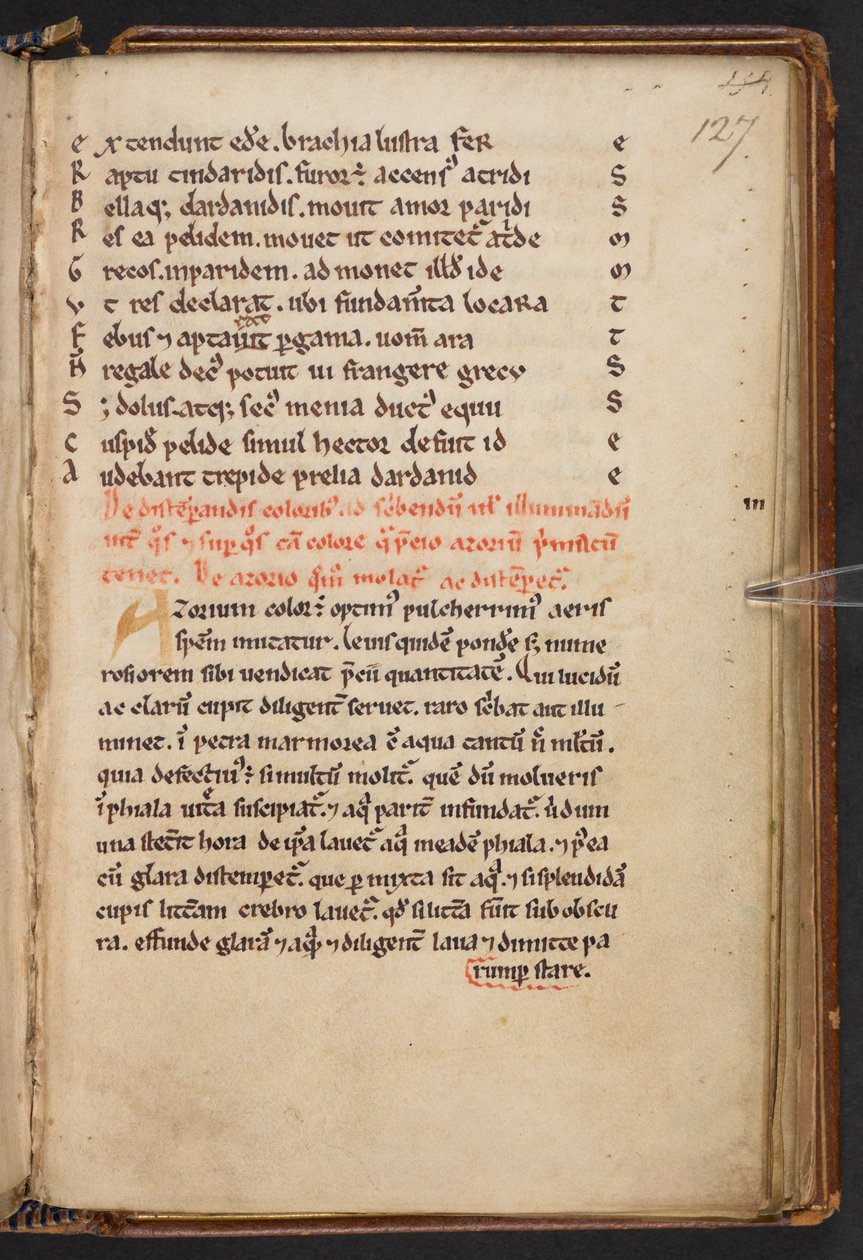 127
e x tendunt ede . brachia lustra feR e
R aptu tindaridis . furor÷ accensꝰ atridi S
B ellaqꝫ dardanidis . mouit amor paridi S
R es ea pelidem . mouet ut comitet᷑ atͥde m
G recos . inparidem . ad monet illd̄ ide m
v t res declarat . ubi fundam̄ta locaRa t
F ebus ⁊ apta ꝑgama . uom̄ ara t
regale decꝰ potuit ui frangere grecv S
S ; dolus . atqꝫ secꝰ menia ductꝰ equu S
c uspid̄ pelide simul hector defuit id e
A udebant trepide prelia dardanid e
De distēꝑandis coloribꝰ ad sc̄bendū ul̓ illuminādū
m
tenet . De azorio qͦm̄ molat᷑ ac distēꝑet᷑.
Azorium color÷ optimꝰ pulcherrimꝰ aeris
spēm imitatur . leuis quidē pondͤe sꝫ nume
rosiorem sibi uendicat p̄cii quantitatē . Qui lucidū
ac clarū cupit diligent̄ seruet . raro sc̄bat aut illu
minet . ī petra marmorea ē aqua tantū ñ mlt̄ū .
quia defectiuꝰ÷ si multū molit᷑ . quē dū molueris
ī phiala uitͤa suscipiat᷑ . ⁊ aqͣ parit̄ infundat᷑ . ū dum
una stet̄it hora de ip̄a lauet᷑ aqͣ in eadē phiala . ⁊ p̄ea
cū glara distemꝑet᷑ . que ꝑ mixta sit aqͣ . ⁊ si splendidā
cupis litt̄am crebro lauet᷑ . qd̄ si litt̄a fūit sub obscu
ra . effunde glarā ⁊ aqͣ ⁊ diligent̄ laua ⁊ dimitte pa
rumꝑ stare .